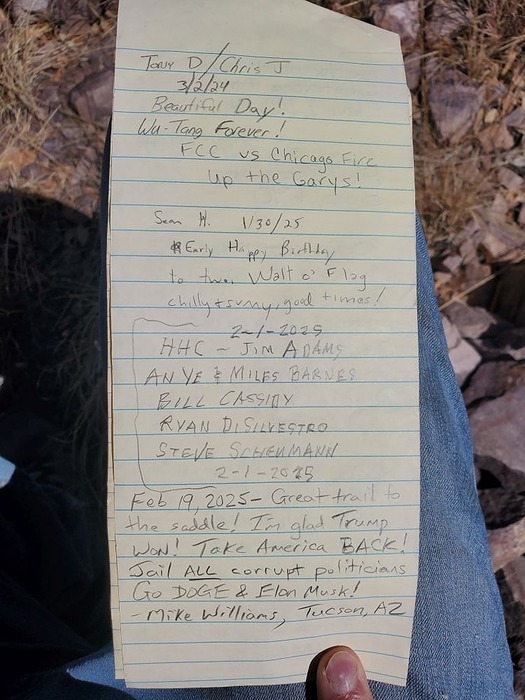 Tony D/Chris J
3/2/24
Beautiful Day!
Wu-Tang Forever!
FCC vs Chicago Fire
Up the Garys!
Sean H. 1/30/25
Early Happy Birthday
to two, Walt o' Flag
chilly + sunny, good times!
2-1-2025
HHC - JIM ADAMS
AN YE & MILES BARNES
BILL CASSIDY
RYAN DISILVESTRO
STEVE SCHEUMANN
2-1-2025
Feb 19, 2025 - Great trail to
the saddle! I'm glad Trump
WON! Take America BACK!
Jail ALL corrupt politicians
Go DOGE & Elon Musk!
- Mike Williams, Tucson, AZ